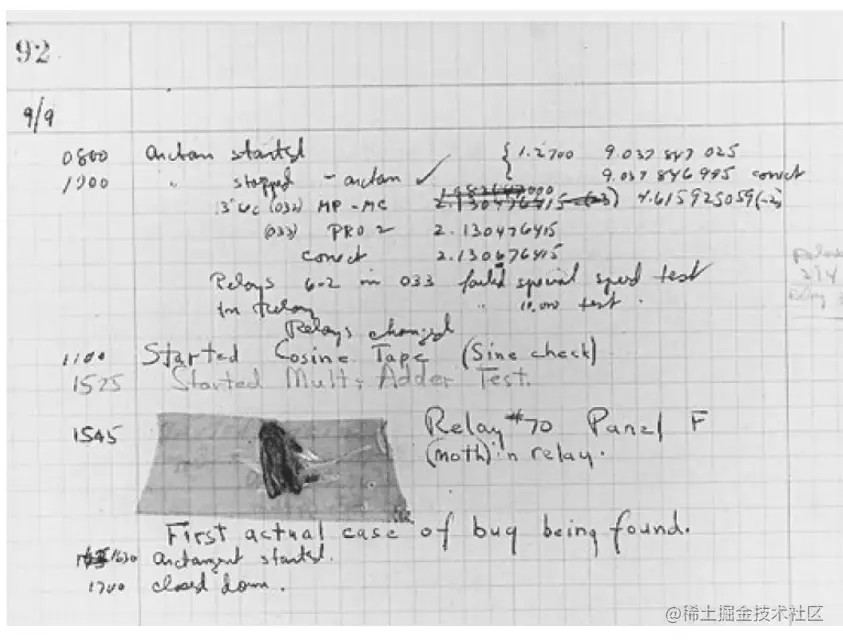 92
9/9
0800 Arctan started { 1.2700 9.037 847 025
1000 " stopped - arctan ✓ 9.037 846 995 correct
13"UC (032) MP - MC 2.130476415 (-3) 4.615925059(-2)
(033) PRO 2 2.130476415
correct 2.130676415
Relays 6-2 in 033 failed special speed test
in Relay " 10.000 test .
Relays changed
1100 Started Cosine Tape (Sine check)
1525 Started Mult+ Adder Test.
1545 Relay #70 Panel F
(moth) in relay.
First actual case of bug being found.
1630 Arctangent started.
1700 closed down.
Relay
@稀土掘金技术社区